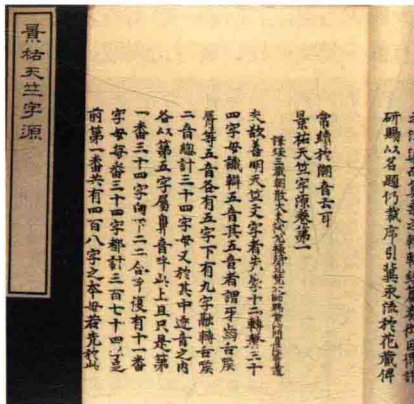 景祐天竺字源
研賜以名題仍裁序引冀永流於花藏俾
常練於潮音云耳
景祐天竺字源卷第一
夫欲善明天竺文字者先學十二轉聲三十
四字母識辯五音其五音者謂牙齒舌喉
脣等五音各有五字下有九字融轉舌喉
二音總計三十四字母又於其中逐音之內
各以第五字屬鼻音呼此上且只是第
一番三十四字向下二二合呼復有十一番
字母每番三十四字都計三百七十四字
前第一番共有四百八字之本母若先於此